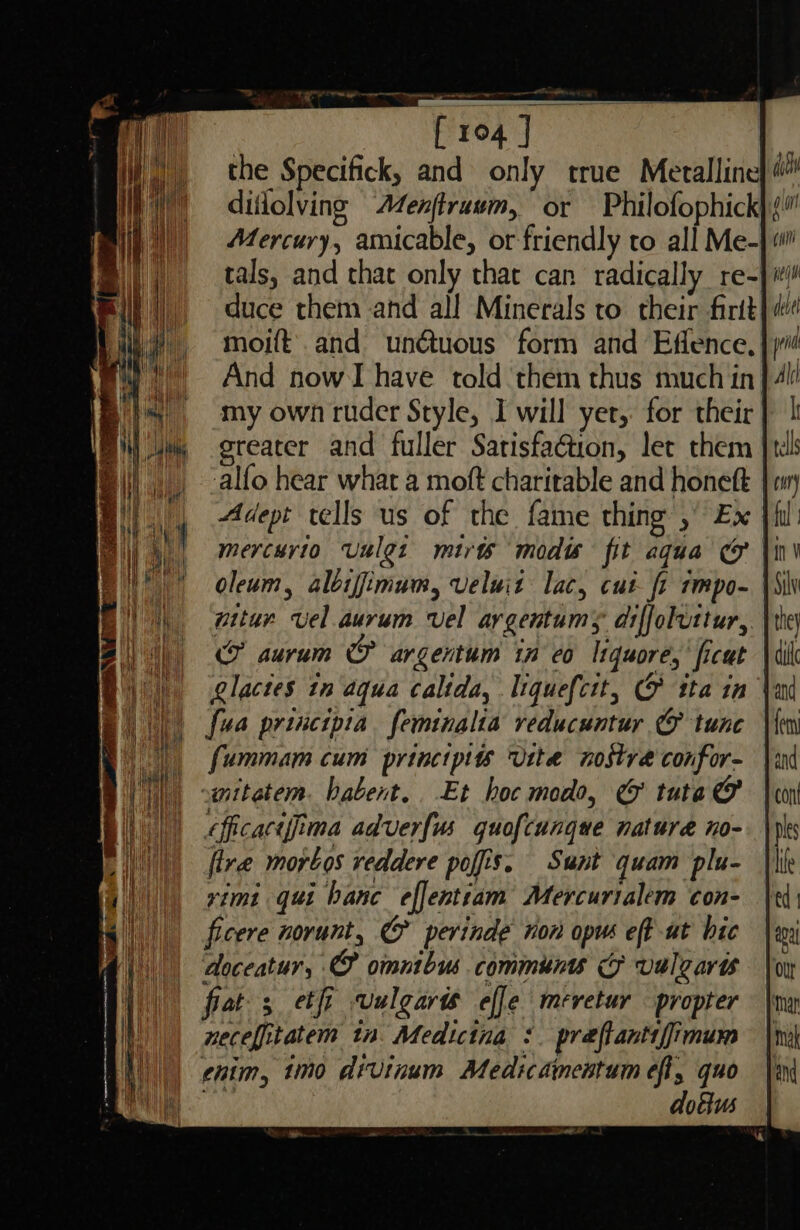 [ 104 ]
the Specifick, and only true Metalline
diſſolving Menſtruum, or Philoſophick
Mercury, amicable, or friendly to all Me-
tals, and that only that can radically re-
duce them and all Minerals to their firſt
moiſt and unctuous form and Eſſence.
And now I have told them thus much in
my own ruder Style, I will yet, for their
greater and fuller Satisfaction, let them
alſo hear what a moſt charitable and honeſt
Adept tells us of the ſame thing, Ex
mercurio vulgi miris modis fit aqua &
oleum, albiſſimum, veluti lac, cui ſi impo-
nitur vel aurum vel argentum; diſſolvitur,
& aurum & argentum in eo liquore, ſicut
glacies in aqua calida, liqueſcit, & ita in
ſua principia ſeminalia reducuntur & tunc
ſummam cum principiis vitæ noſtræ confor-
mitatem habent. Et hoc modo, & tuta &
efficaciſſima adverſus quoſcunque naturæ no-
ſtræ morbos reddere poſſis. Sunt quam plu-
rimi qui hanc eſſentiam Mercurialem con-
ficere norunt, & perinde non opus eſt ut hic
doceatur, & omnibus communis & vulgaris
fiat; etſi vulgaris eſſe meretur propter
neceſſitatem in Medicina: præſtantiſſimum
enim, imo divinum Medicamentum eſt, quo
doctius